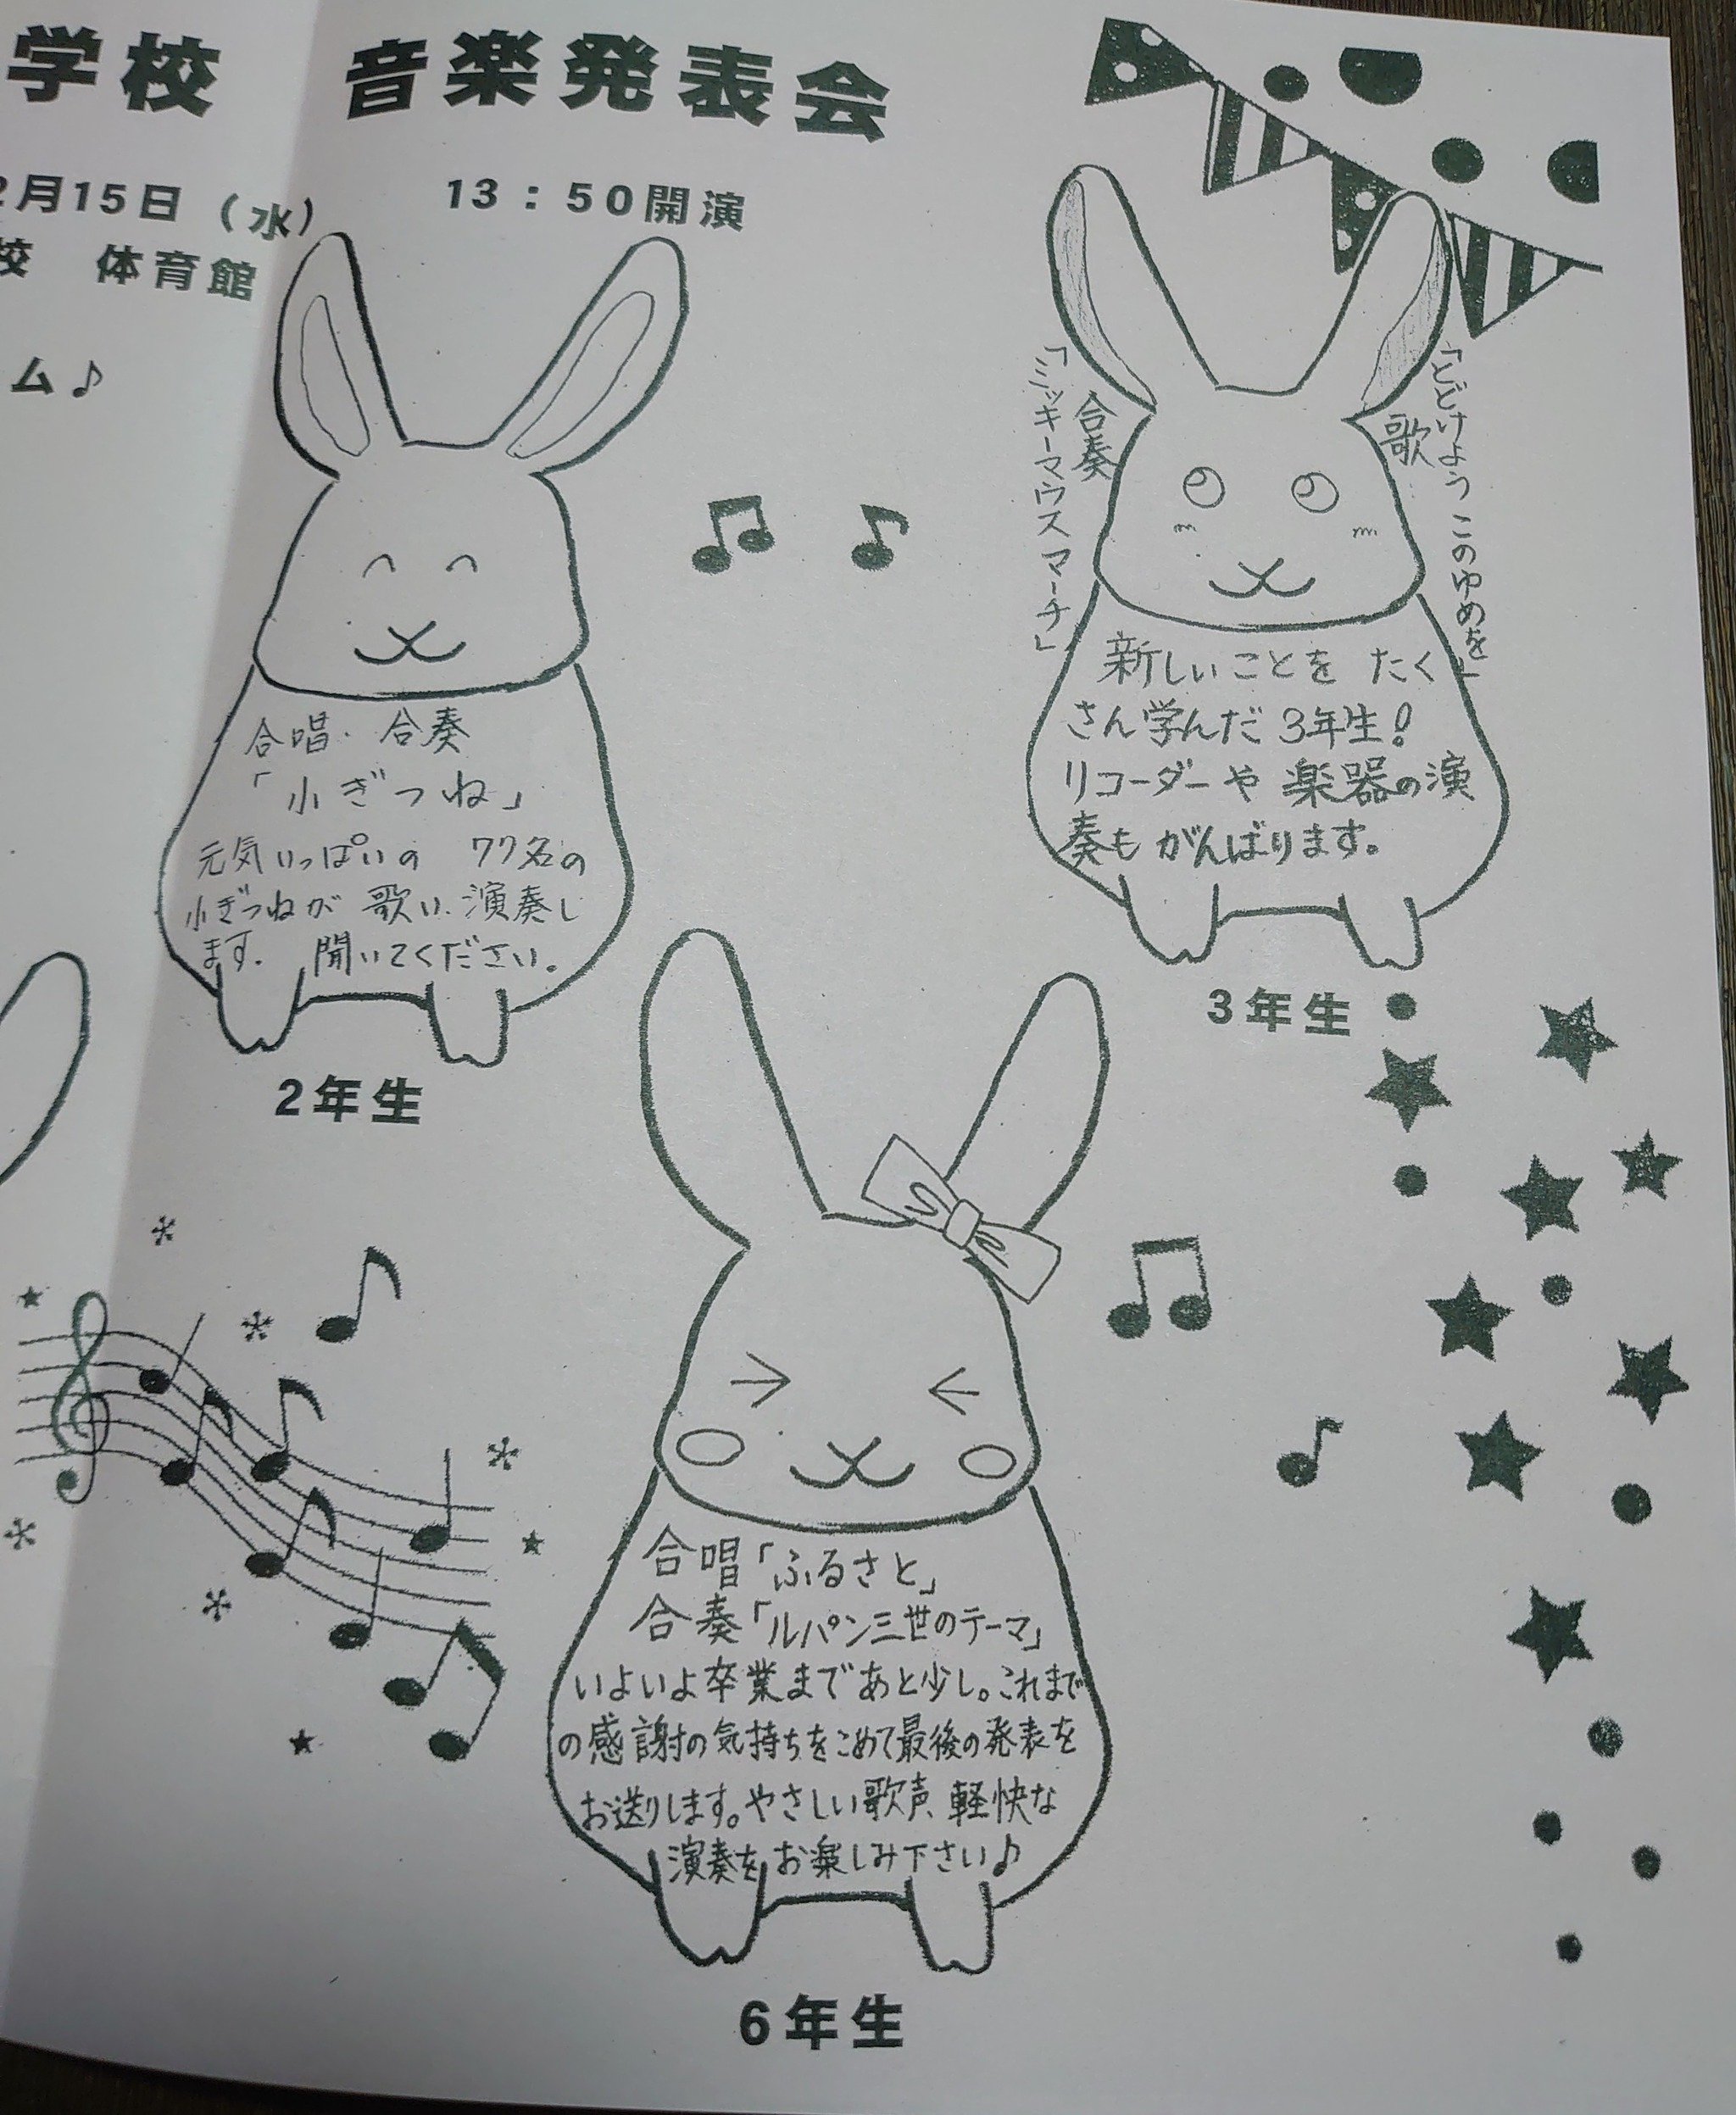 学校 音楽発表会
2月15日（水） 13：50開演
校 体育館
ム♪
合唱・合奏
「小ぎつね」
元気いっぱいの 77名の
小ぎつねが 歌い、演奏し
ます。 聞いてください。
2年生
合奏
「ミッキーマウスマーチ」
歌
「とどけよう このゆめを」
新しいことを たく
さん学んだ 3年生!
リコーダーや 楽器の演
奏も がんばります。
3年生
合唱「ふるさと」
合奏「ルパン三世のテーマ」
いよいよ卒業まであと少し。これまで
の感謝の気持ちをこめて最後の発表を
お送りします。やさしい歌声、軽快な
演奏をお楽しみ下さい♪
6年生